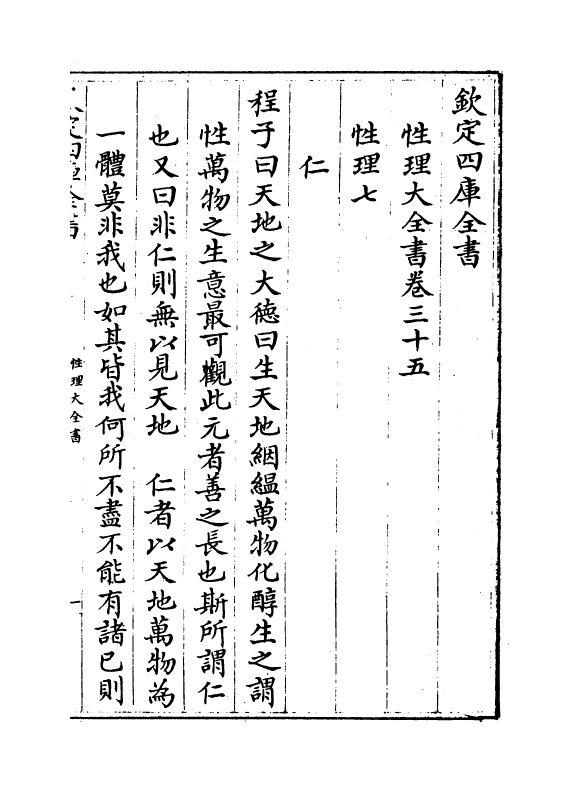 欽定四庫全書
性理大全書卷三十五
性理七
仁
程子曰天地之大徳曰生天地絪緼萬物化醇生之謂
性萬物之生意最可觀此元者善之長也斯所謂仁
也又曰非仁則無以見天地　仁者以天地萬物為
一體莫非我也如其皆我何所不盡不能有諸已則
欽定四庫全書
性理大全書
一